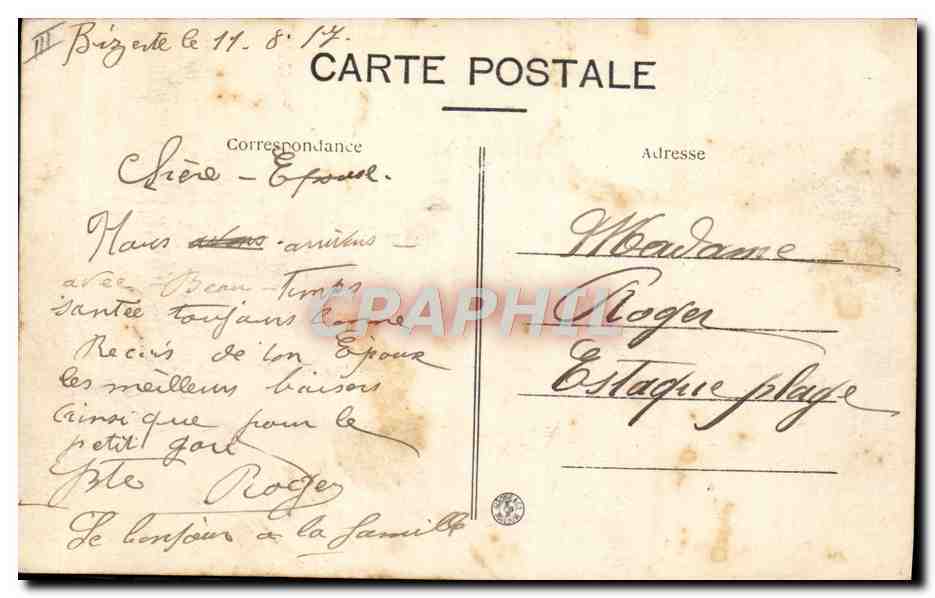 III Bizerte le 11. 8. 17.
CARTE POSTALE
Correspondance
Chère - Epouse.
Nous avons arrivons
avec Beau Temps
santée toujours bonne
Recois de ton Epoux
les meilleurs baisers
ainsi que pour le
petit gars
Roger
Le bonjour a la famille
Adresse
Madame
Roger
Estaque plage
CPAPHIL